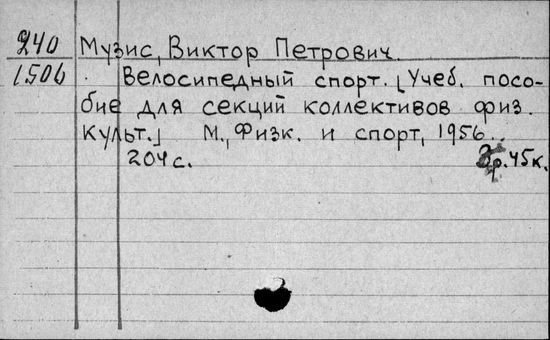 240 Музис, Виктор Петрович.
1506 Велосипедный спорт. [Учеб. посо-
бие для секций коллективов физ.
культ.] М., Физк. и спорт, 1956.
204 с. р. 45 к.